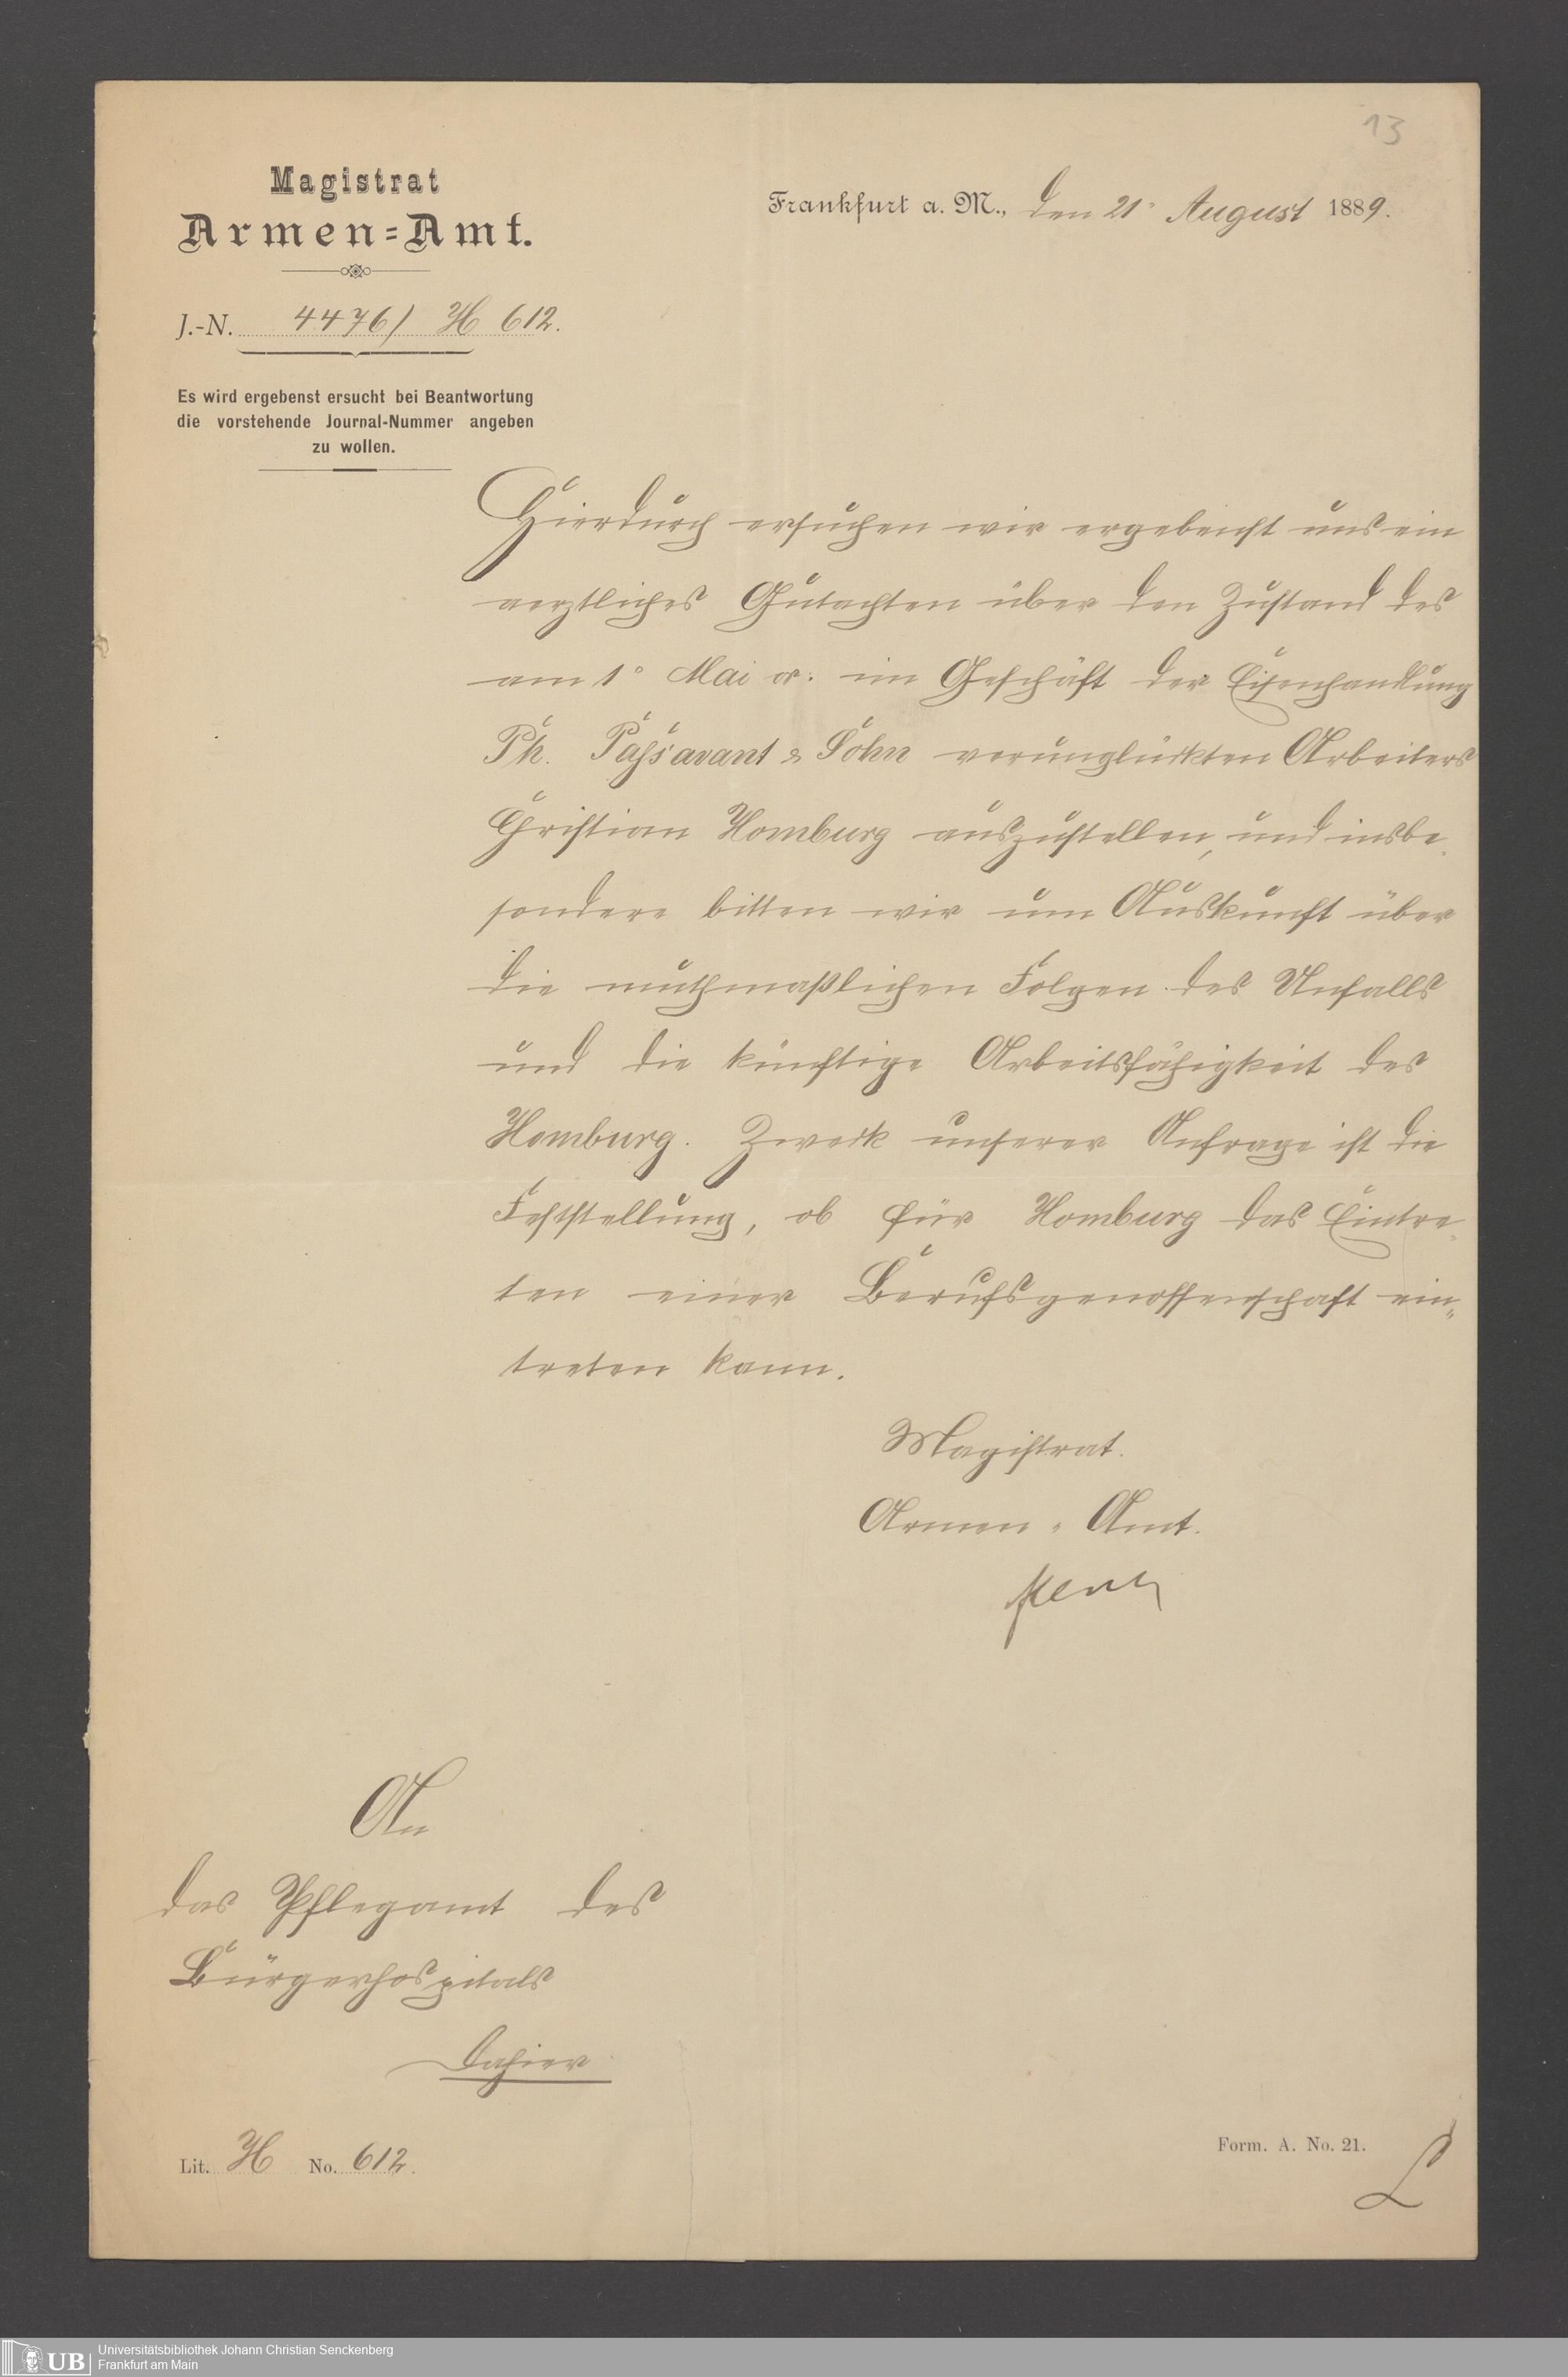 13
Magistrat
Armen=Amt.
Frankfurt a. M., den 21° August 1889.
J.-N. 4476/ H 612.
Es wird ergebenst ersucht bei Beantwortung
die vorstehende Journal-Nummer angeben
zu wollen.
Hierdurch ersuchen wir ergebenst uns ein
aerztliches Gutachten über den Zustand des
am 1° Mai cr. im Geschäft der Eisenhandlung
Ph. Passavant & Sohn verunglückten Arbeiters
Christian Homburg auszustellen, und insbe-
sondere bitten wir um Auskunft über
die muthmaßlichen Folgen des Unfalls
und die künftige Arbeitsfähigkeit des
Homburg. Zweck unserer Anfrage ist die
Feststellung, ob für Homburg das Eintre-
ten einer Berufsgenossenschaft ein=
treten kann.
Magistrat.
Armen-Amt.
An
das Pflegamt des
Bürgerhospitals
dahier
Lit. H No. 612.
Form. A. No. 21.
L
UB Universitätsbibliothek Johann Christian Senckenberg
Frankfurt am Main